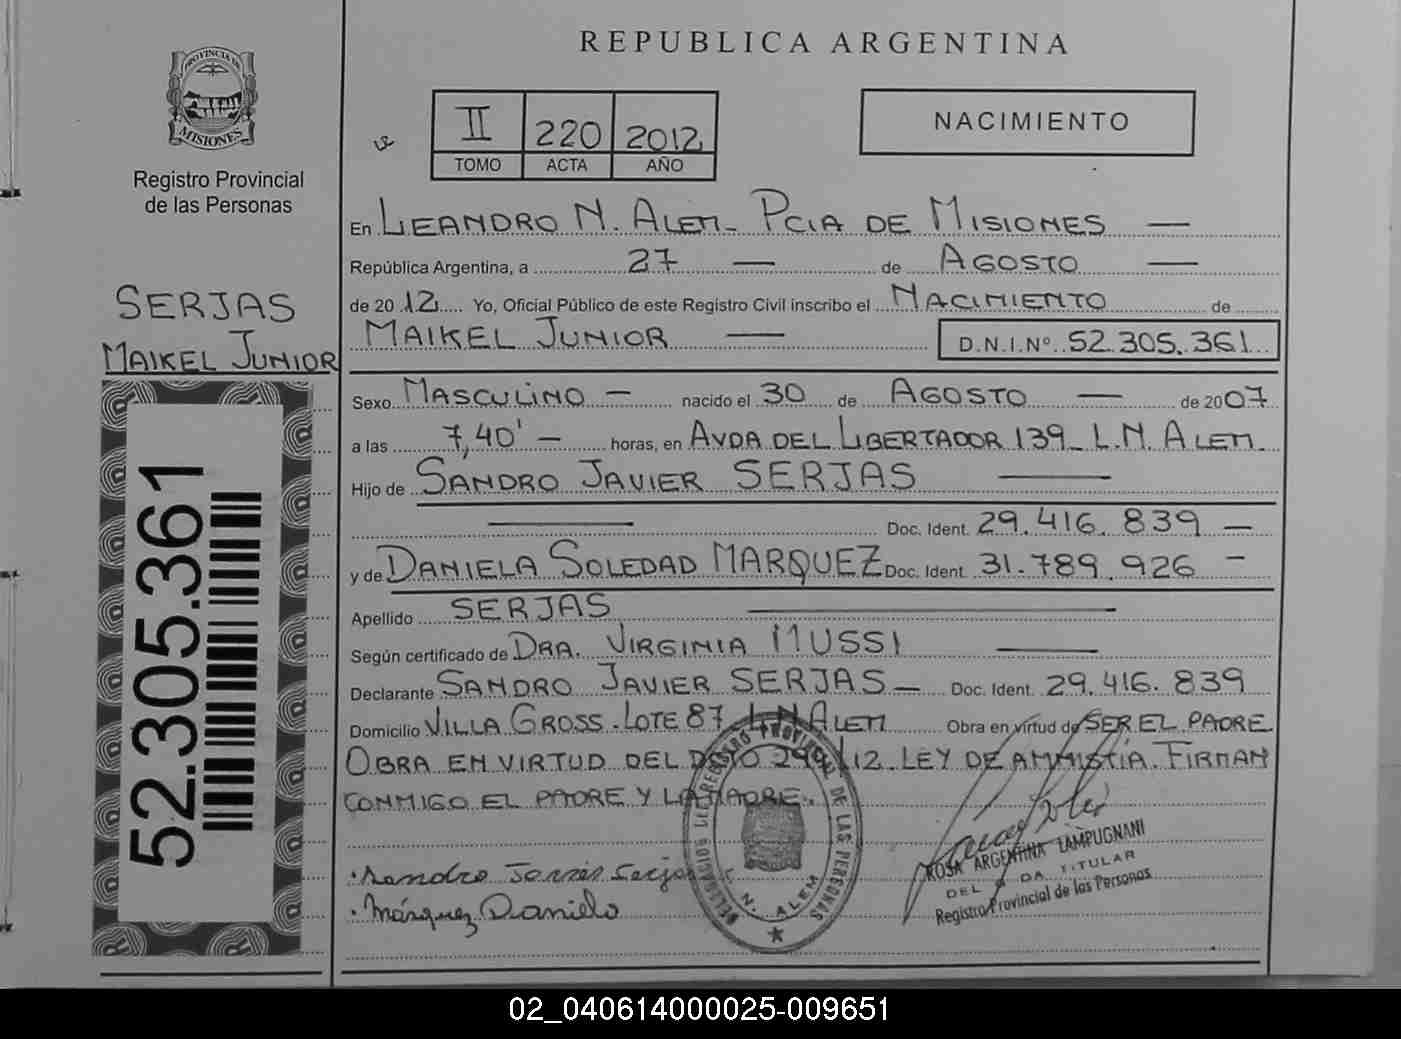 REPUBLICA ARGENTINA
PROVINCIA DE
MISIONES
Registro Provincial
de las Personas
II 220 2012
TOMO ACTA AÑO
NACIMIENTO
En LEANDRO N. ALEM - PCIA DE MISIONES —
República Argentina, a 27 — de AGOSTO —
de 2012 Yo, Oficial Público de este Registro Civil inscribo el NACIMIENTO de
MAIKEL JUNIOR — D.N.I.Nº 52.305.361
SERJAS
MAIKEL JUNIOR
52.305.361
Sexo MASCULINO — nacido el 30 de AGOSTO — de 2007
a las 7,40' — horas, en AVDA DEL LIBERTADOR 139 - L.N. ALEM
Hijo de SANDRO JAVIER SERJAS —
— Doc. Ident. 29.416.839 —
y de DANIELA SOLEDAD MARQUEZ Doc. Ident. 31.789.926 —
Apellido SERJAS —
Según certificado de DRA. VIRGINIA MUSSI —
Declarante SANDRO JAVIER SERJAS — Doc. Ident. 29.416.839
Domicilio VILLA GROSS - LOTE 87 L.N ALEM Obra en virtud de SER EL PADRE
OBRA EN VIRTUD DEL DTO /12 LEY DE AMNISTIA. FIRMAN
CONMIGO EL PADRE Y LA MADRE.
Sandro Javier Serjas
Márquez Daniela
DELEGACION DEL REGISTRO PROVINCIAL DE LAS PERSONAS
N. ALEM
ROSA ARGENTINA LAMPUGNANI
TITULAR
Registro Provincial de las Personas
02_040614000025-009651